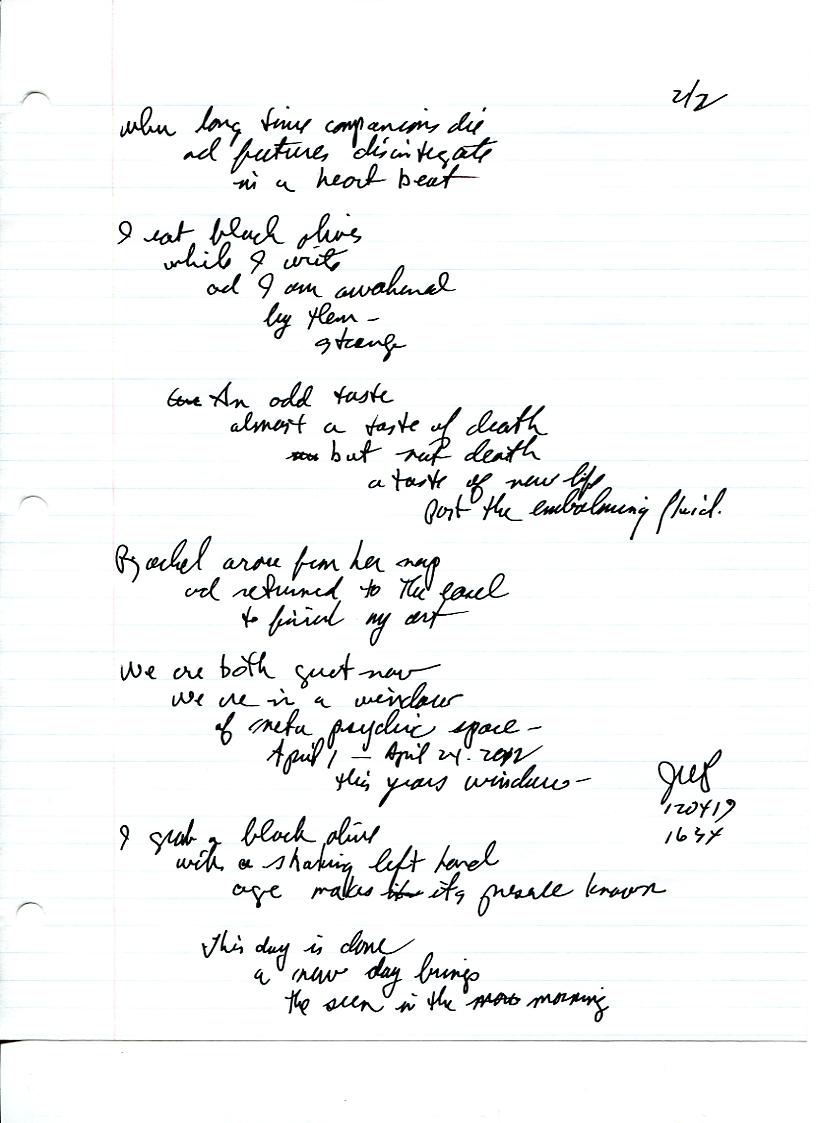 2/2
when long time companions die
ad futures disintegate
in a heart beat
I eat black olives
while I write
ad I am awakened
by them -
strange
An odd taste
almost a taste of death
but not death
a taste of new life
post the embalming fluid.
Rachel arose from her nap
ad returned to the easel
to finish my art
We are both quiet now
we are in a window
of meta psychic space -
April 1 - April 24. 2012
this years window -
JWB
120419
1634
I grab a black olive
with a shaking left hand
age makes its presence known
This day is done
a new day brings
the seen in the morning